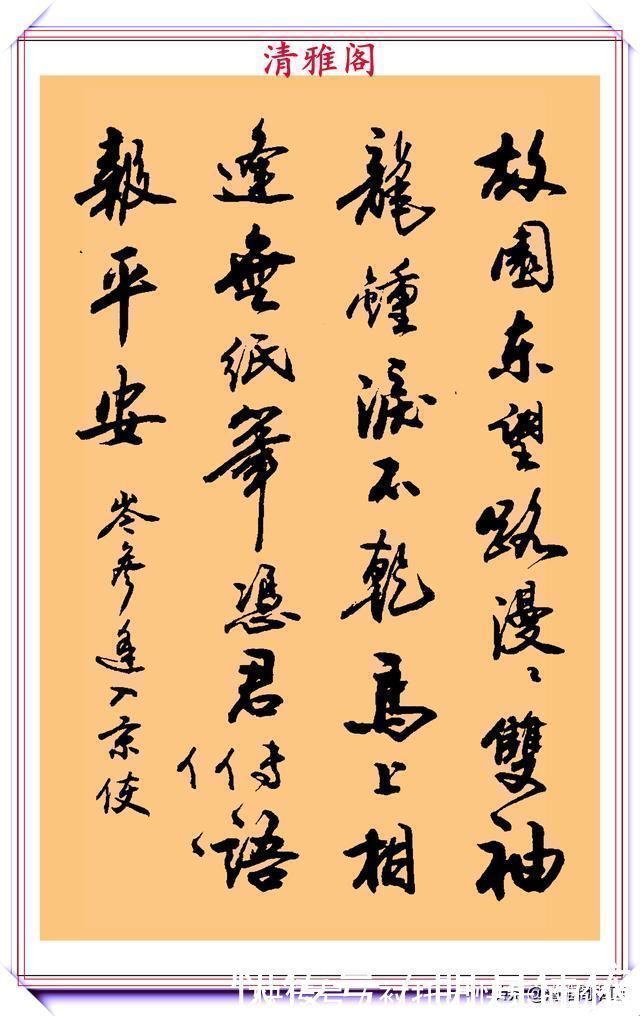 清雅阁
故園东望路漫〻雙袖
龍鍾淚不乾馬上相
逢無紙筆憑君傳語
報平安
岑參逢入京使
快传号/